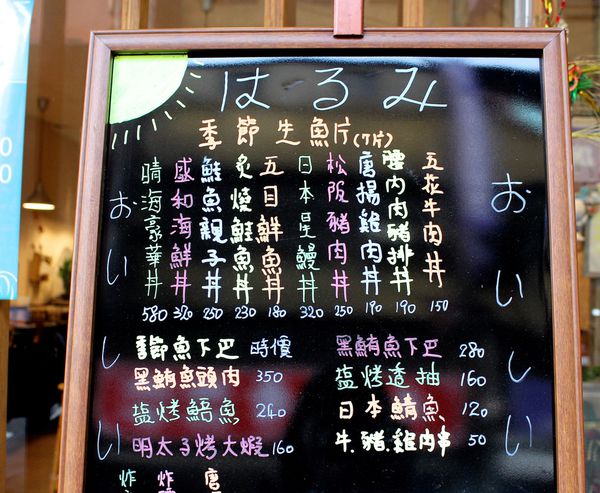 はるみ
季節生魚片(7片)
五花牛肉丼 150
腰內肉豬排丼 190
唐揚雞肉丼 190
松阪豬肉丼 250
日本星鰻丼 320
五目鮮魚丼 180
炙燒鮭魚丼 230
鮭魚親子丼 250
盛和海鮮丼 320
晴海豪華丼 580
おいしい
おいしい
季節魚下巴 時價
黑鮪魚頭肉 350
塩烤鯃魚 240
明太子烤大蝦 160
黑鮪魚下巴 280
塩烤透抽 160
日本鯖魚 120
牛.豬.雞肉串 50
炸
炸
唐